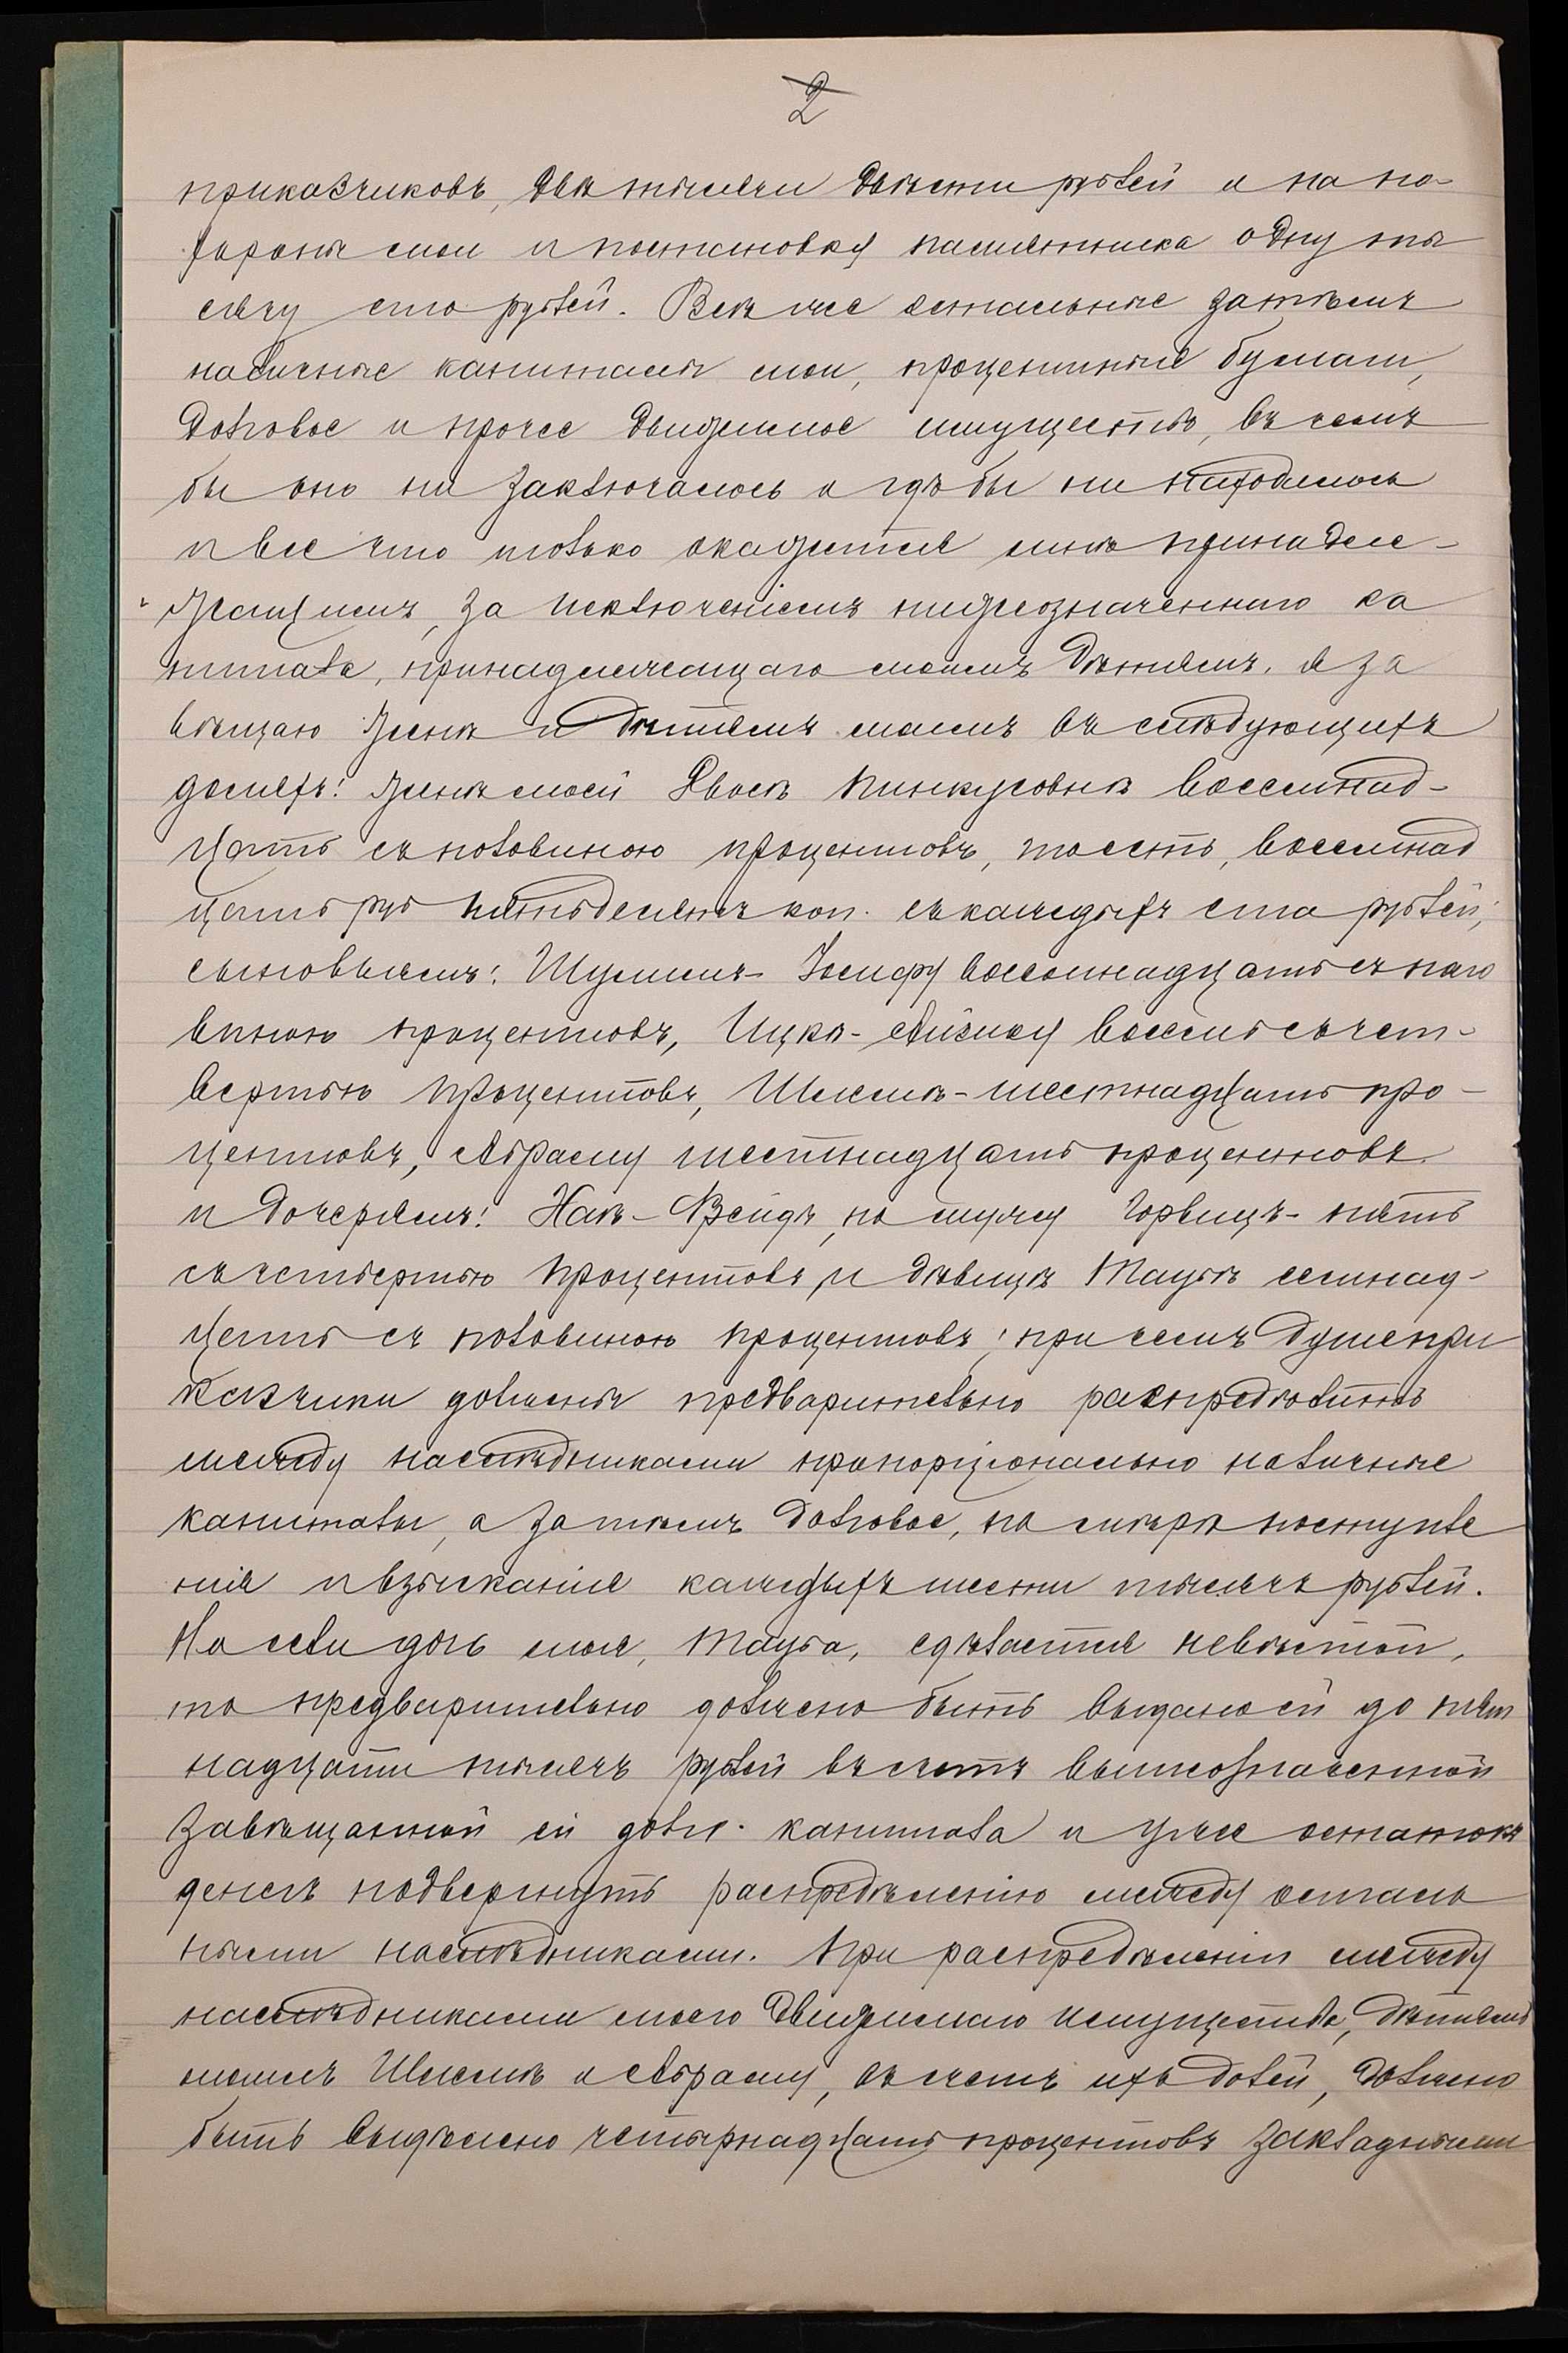 2
приказчиковъ, двѣ тысячи двѣсти рублей и на по-
хороны мои и постановку памятника одну ты
сячу сто рублей. Всѣ же остальные затѣмъ
наличные капиталы мои, процентныя бумаги,
долговое и прочее движимое имущество, въ чемъ
бы оно ни заключалось и гдѣ бы ни находилось
и все что только окажется мнѣ принадле-
жащимъ, за исключеніемъ нижеозначеннаго ка
питала, принадлежащаго моимъ дѣтямъ, я за
вѣщаю женѣ и дѣтямъ моимъ въ слѣдующихъ
доляхъ: женѣ моей Двосѣ Пинкусовнѣ восемнад-
цать съ половиною процентовъ, то есть, восемнад
цать руб пятьдесятъ коп. съ каждыхъ ста рублей;
сыновьямъ: Шулимъ-Іосифу восемнадцать съ поло
виною процентовъ, Ицкѣ-Айзику восемь съ чет-
вертью процентовъ, Шлемѣ-шестнадцать про-
центовъ, Абраму шестнадцать процентовъ
и дочерямъ: Хаѣ-Рейзѣ, по мужу Горвицъ- пять
съ четвертью процентовъ и дѣвицѣ Таубѣ семнад-
цать съ половиною процентовъ; при чемъ душепри
казчики должны предварительно распредѣлить
между наслѣдниками пропорціонально наличные
капиталы, а затѣмъ долговое, по мѣрѣ поступле
нія и взысканія каждыхъ шести тысячъ рублей.
Но если дочь моя, Тауба, сдѣлается невѣстой,
то предварительно должно быть выдано ей до пят
надцати тысячъ рублей въ счетъ вышеозначенной
завѣщанной ей доли капитала и уже остатокъ
денегъ подвергнуть распредѣленію между осталь
ными наслѣдниками. При распредѣленіи между
наслѣдниками моего движимаго имущества, дѣтямъ
моимъ Шлемѣ и Абраму, въ счетъ ихъ долей, должно
быть выдѣлено четырнадцать процентовъ закладными